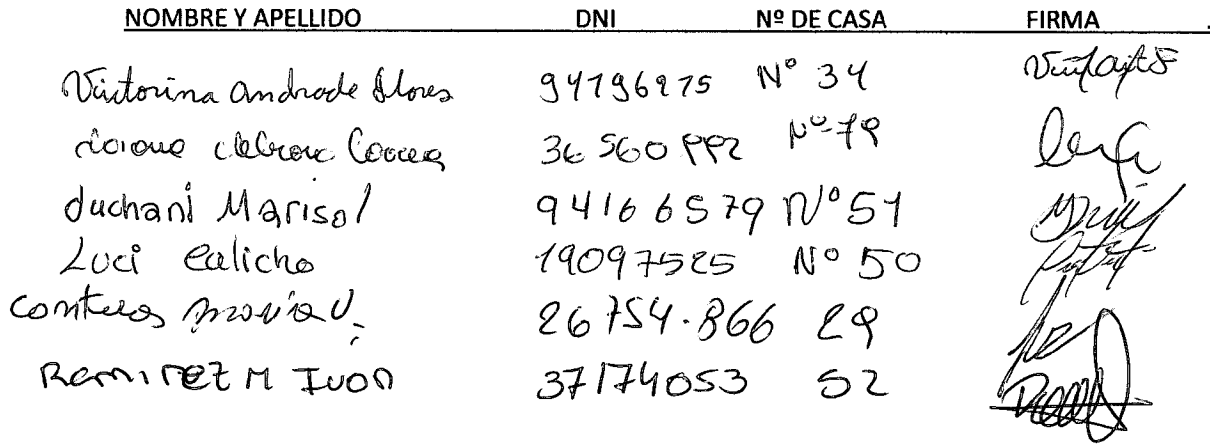 NOMBRE Y APELLIDO DNI Nº DE CASA FIRMA
Victorina Andrade Flores 94796975 Nº 34
36560992 Nº 79
duchani Marisol 94166579 Nº 51
Luci Calicho 19097525 Nº 50
Contreras María V. 26754.866 29
Ramirez M Ivon 37174053 52